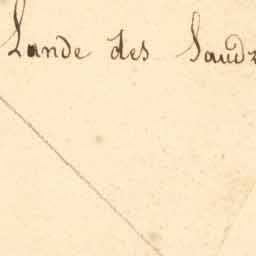 Lande des Saudr